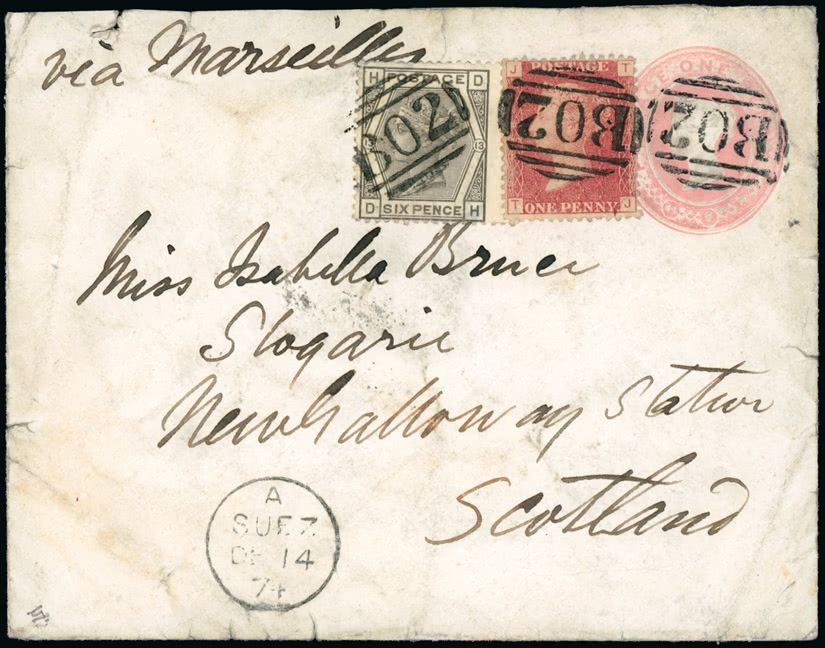 via Marseilles
H POSTAGE D
B02
13
D SIX PENCE H
J POSTAGE T
B02
T ONE PENNY J
GE ONE
B02
Miss Isabella Bruce
Slogarie
New Galloway Station
Scotland
A
SUEZ
DE 14
74